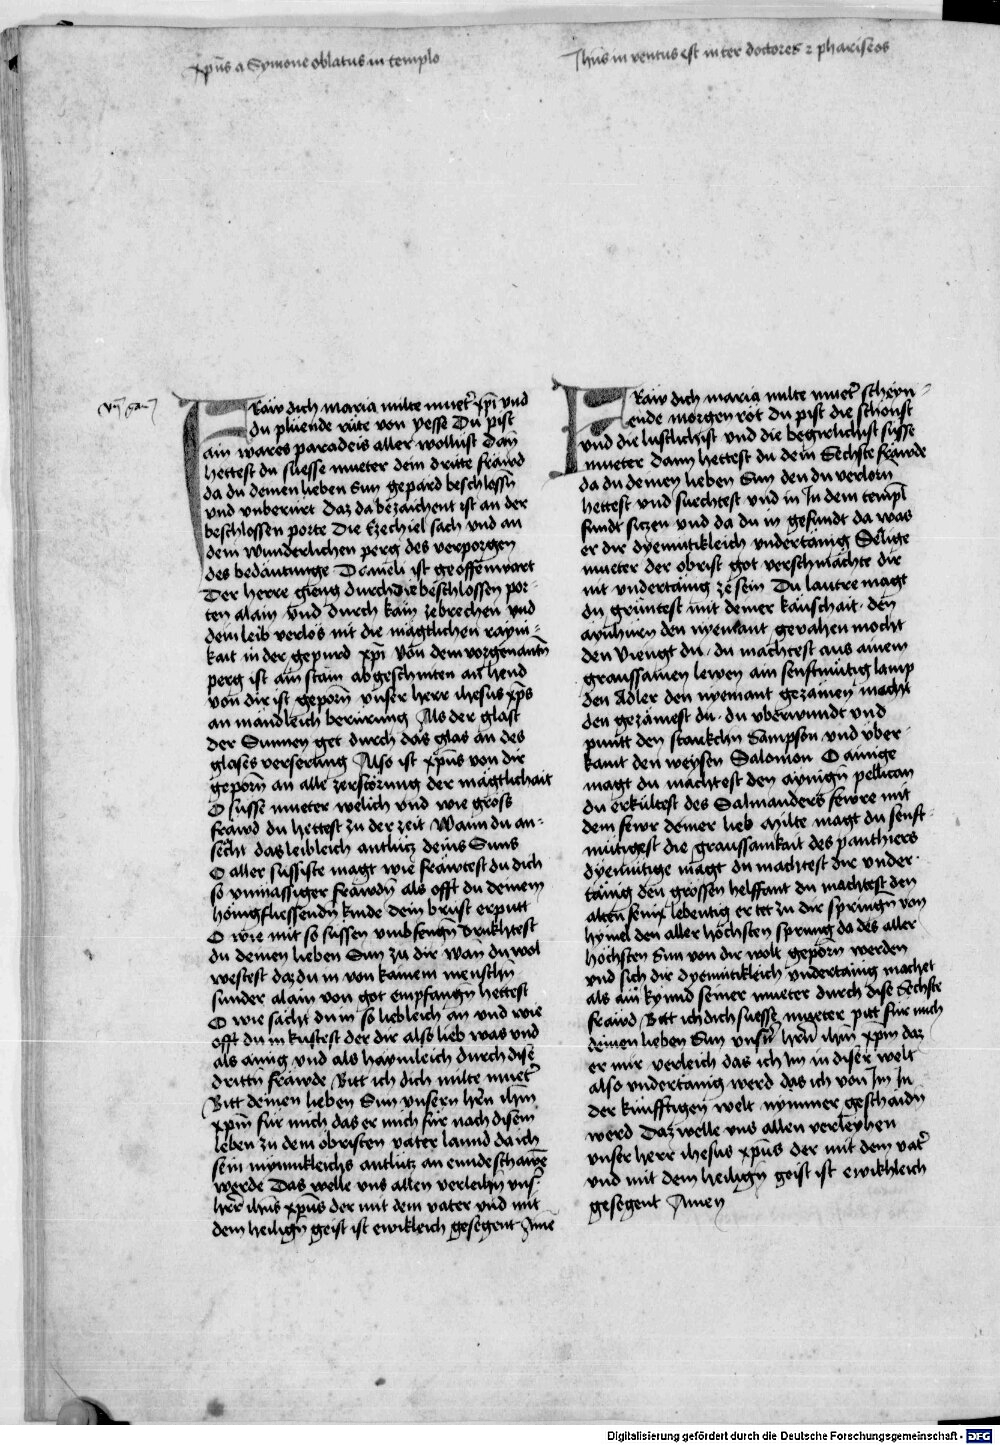 xpūs a Symone oblatus in templo
Jhūs in ventus est in ter doctores ⁊ phariseos
FRaw dich maria milte muet̄ xp̄i vnd
du plüende rute von yesse Du pist
ain wares paradeis aller wollust Dan̄
hettest du suesse mueter dein dritte frawd
da du deinen lieben Sun gepard beschlossn̄
vnd vnberürt Daz da bezaichent ist an der
beschlossen porte Die Ezechiel sach vnd an
dem wunderlichen perg des verporgen
des bedäutunge Danieli ist geoffenwart
Der herre gieng durch die beschlossen por-
ten alain vnd durch kain zebrechen vnd
dein leib verlos nit die mägtlichen rayni-
kait in der gepurd xp̄i Von dem vorgenantn̄
perg ist ain stain abgeschniten an hend
von dir ist geporn̄ vnser herr ihesus xp̄s
an mandleich berürung Als der glast
der Sunnen get durch das glas an des
glases verserung Also ist xpūs von dir
geporn̄ an alle zerstörung der mägtlichait
O süsse mueter welich vnd wie gross
frawd du hettest zu der zeit Wann du an-
secht das leibleich antlütz deins Suns
O aller süssiste magt wie frawtest du dich
so vnmassiger frawdn̄ als offt du deinem
hönigfliessendn̄ kinde dein brust erputt
O wie mit so süssen vmbfengn̄ drukhtest
du deinen lieben Sun zu dir Wan̄ du wol
westest daz du in von kainem menschn̄
sunder alain von got empfangn̄ hettest
O wie sächt du in so liebleich an vnd wie
offt du in kustest der dir also lieb was vnd
als ainig vnd als haymleich durch dise
drittn̄ frawde Bitt ich dich milte muet̄
Bitt deinen lieben Sun vnsern hrn̄ ihm̄
xpm̄ für mich das er mich für nach disem
leben zu dem obristen vater lannd da ich
sein mynnikleichs antlütz an ennde schawe
werde Das welle vns allen verleihn̄ vns̄
herr̄ ihūs xpūs der mit dem vater vnd mit
dem heilign̄ geist ist ewikleich gesegent Amē
FRaw dich maria milte muet̄ scheyn-
ende morgen rot du pist die schonst
vnd die lustlichist vnd die begirlichist süsse
mueter dann hettest du dein Sechste frawde
da du deinen lieben Sun den du verlorn
hettest vnd suechtest vnd in In dem templ̄
fundt siczen vnd da du in gefundt da was
er dir dyemütikleich vndertänig Selige
mueter der obrist got verschmächte dir
nit vndertänig ze sein Du lautre magt
du grüntest mit deiner käuschait den
aynhüren den nyemant gevahen mocht
den viengt du du machtest aus ainem
graussamen lewen ain senftmütig lamp
den Adler den nyemant gezämen macht
den gezämest du du vberwundt vnd
puntt den starckchn Sampson vnd vber-
kamt den weysen Salomon O ainige
magt du machtest den aynign̄ pellican
du erkültest des Salmanders fewre mit
dem fewr deiner lieb Milte magt du senft-
mütigest die graussamkait des panthiers
dyemütige magt du machtest dir vnder-
tänig den grossen helffant du machtest den
alten fenix lebentig er tet zu dir springn̄ von
hymel den aller höchsten sprung da des aller
höchsten Sun von dir wolt geporn̄ werden
vnd sich dir dyemütikleich vndertänig machet
als ain kynnd seiner mueter durch dise Sechste
frawd Bitt ich dich suesse mueter pitt für mich
deinen lieben Sun vnsn̄ hrn̄ ihm̄ xpm̄ daz
er mir verleich das ich Im in diser welt
also vndertanig werd das ich von Im In
der künfftigen welt nymmer geschaidn̄
werd Daz welle vns allen verleyhen
vnser herr ihesus xpūs der mit dem vat̄
vnd mit dem heilign̄ geist ist ewikhleich
gesegent Amen